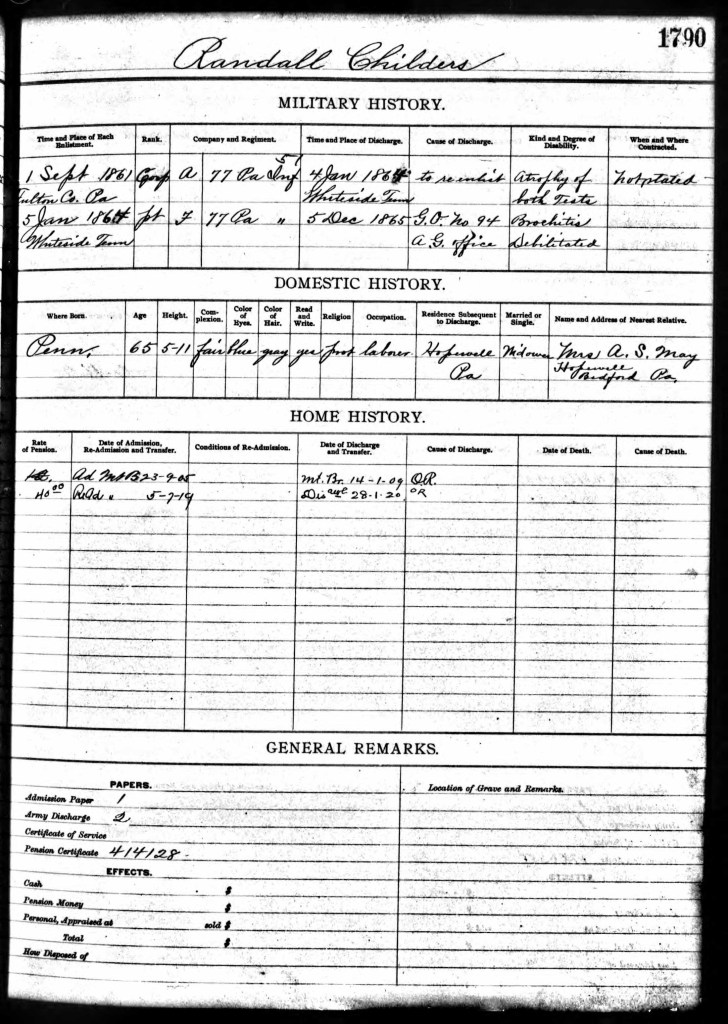 1790
Randall Childers
MILITARY HISTORY.
Time and Place of Each Enlistment. Rank. Company and Regiment. Time and Place of Discharge. Cause of Discharge. Kind and Degree of Disability. When and Where Contracted.
1 Sept 1861 Corp A 77 Pa Inf 4 Jan 1864 to reenlist Atrophy of not stated
Fulton Co. Pa Whiteside Tenn both Tests
5 Jan 1864 pt F 77 Pa " 5 Dec 1865 G.O. No 94 Brochitis
Whiteside Tenn A G. office Debilitated
DOMESTIC HISTORY.
Where Born. Age Height. Complexion. Color of Eyes. Color of Hair. Read and Write. Religion Occupation. Residence Subsequent to Discharge. Married or Single. Name and Address of Nearest Relative.
Penn. 65 5-11 fair blue gray yes prot laborer Hopewell Widower Mrs A. S. May
Pa Hopewell
Bedford Pa.
HOME HISTORY.
Rate of Pension. Date of Admission, Re-Admission and Transfer. Conditions of Re-Admission. Date of Discharge and Transfer. Cause of Discharge. Date of Death. Cause of Death.
Ad Mt B 23-9-05 Mt. Br. 14-1-09 O.R.
40 00 ReAd " 5-7-19 28-1-20 OR
GENERAL REMARKS.
PAPERS.
Location of Grave and Remarks.
Admission Paper 1
Army Discharge 2
Certificate of Service
Pension Certificate 414128
EFFECTS.
Cash $
Pension Money $
Personal, Appraised at sold $
Total $
How Disposed of